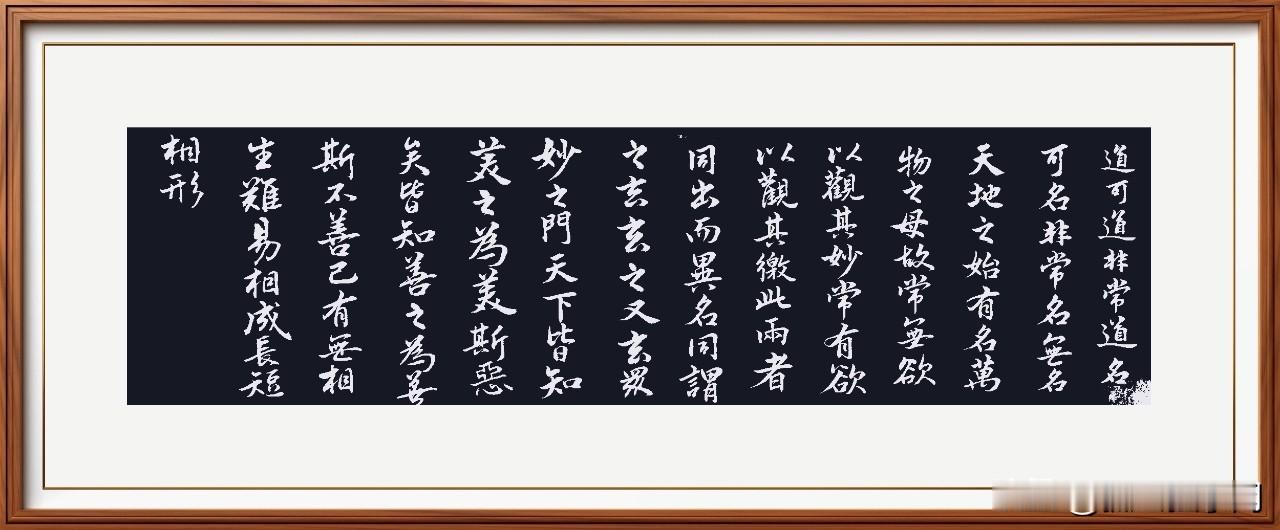 道可道非常道名
可名非常名無名
天地之始有名萬
物之母故常無欲
以觀其妙常有欲
以觀其徼此兩者
同出而異名同謂
之玄玄之又玄眾
妙之門天下皆知
美之為美斯惡
矣皆知善之為善
斯不善已有無相
生難易相成長短
相形